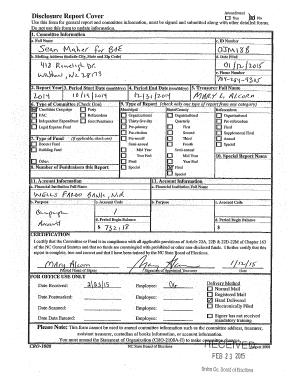 Disclosure Report Cover
Amendment
Yes No
Use this form for general report and committee information, must be signed and submitted along with other detailed forms.
Do not use this form to update information.
1. Committee Information
a. Full Name
c. ID Number
Sean Maher for BOE
b. Mailing Address (include City, State and Zip Code)
d. Date Filed
01/12/2015
e. Phone Number
NC 28173
2. Report Year
3. Period Start Date (mm/dd/yy)
4. Period End Date (mm/dd/yy)
5. Treasurer Full Name
2014
Mary L. Alcorn
6. Type of Committee (Check One)
9. Type of Report (check only one type of report from one category)
Candidate Campaign
Party
Municipal
State/County
Referendum
PAC
Referendum
Organizational
Organizational
Organizational
Independent Expenditure
Joint Fundraiser
Thirty-five day
Quarterly
Pre-referendum
Legal Expense Fund
Pre-primary
First
Final
Pre-election
Second
Supplemental Final
7. Type of Fund (if applicable, check one)
Pre-runoff
Third
Annual
Booster Fund
Semi-annual
Fourth
Special
Building Fund
Mid Year
Semi-annual
Year End
Mid Year
10. Special Report Name
Other:
Final
Year End
8. Number of Fundraisers this Report
Special
Final
Special
11. Account Information
11. Account Information
a. Financial Institution Full Name
a. Financial Institution Full Name
Wells Fargo Bank, NA
b. Purpose
c. Account Code
b. Purpose
c. Account Code
Campaign
Account
d. Period Begin Balance
d. Period Begin Balance
$ 732.18
$
CERTIFICATION
I certify that the Committee or Fund is in compliance with all applicable provisions of Article 22A, 22B & 22D-22M of Chapter 163
of the NC General Statutes and that no funds are commingled with prohibited or other non-disclosed funds. I further certify that this
report is complete, true and correct and that I have been trained by the NC State Board of Elections.
Mary Alcorn
1/12/15
Printed Name of Signer
Signature of Appointed Treasurer
Date
FOR OFFICE USE ONLY
Date Received:
Employee:
Delivery Method
Normal Mail
Date Postmarked:
Employee:
Registered Mail
Hand Delivered
Date Scanned:
Employee:
Electronically Filed
Date Data Entered:
Employee:
Signer has not received
mandatory training
Please Note: This form cannot be used to amend committee information such as the committee address, treasurer,
assistant treasurer, custodian of books information, or account information.
You must amend the Statement of Organization (CRO-2100A-D) to make committee changes.
CRO-1000
NC State Board of Elections
RECEIVED
FEB 23 2015
Union Co. Board of Elections